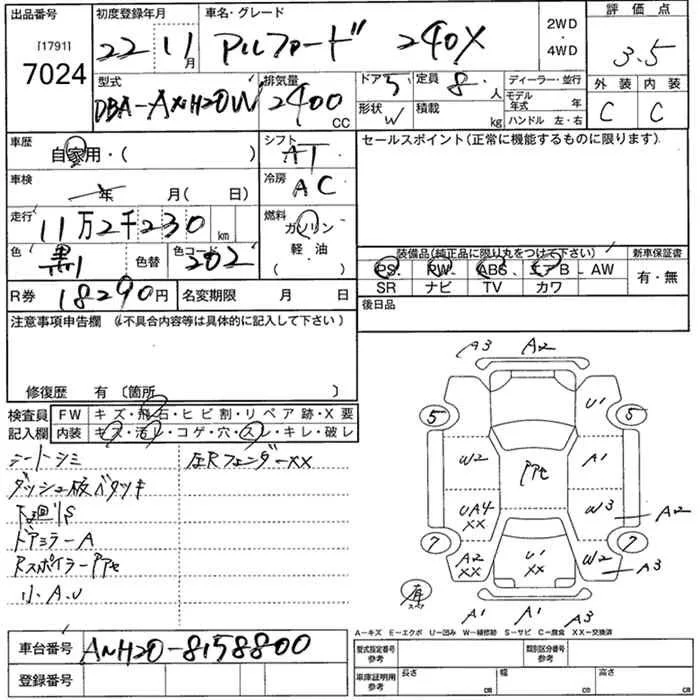 出品番号
[1791]
7024
初度登録年月
22 11月
車名・グレード
アルファード 240X
2WD
・
4WD
評価点
3.5
外装 内装
C C
型式
DBA-ANH20W
排気量
2400
CC
ドア 5
定員 8人
形状 W
積載 kg
ディーラー・並行
モデル年式 年
ハンドル 左・右
車歴
自家用・( )
シフト
AT
車検
年 月( 日)
冷房
AC
走行
11万2千230 km
燃料
ガソリン
軽・油
色 黒 色替 色コード 202
R券 18290円
名変期限 月 日
セールスポイント(正常に機能するものに限ります)
装備品(純正品に限り丸をつけて下さい)
新車保証書
PS. PW. ABS. エアB - AW
有・無
SR ナビ TV カワ
後日品
注意事項申告欄 (不具合内容等は具体的に記入して下さい)
修復歴 有 〔箇所 〕
検査員記入欄
FW キズ・飛石・ヒビ割・リペア跡・X要
内装 キズ・汚レ・コゲ・穴・スレ・キレ・破レ
シートシミ
左Rフェンダー XX
ダッシュ板ベタツキ
下廻りS
ドアミラーA
RスポイラーPPセ
小A.U
A3 A2
5 U1 5
W2 PPセ A1
UA4 XX W3 A2
7 A2 XX U1 XX W2 7 A3
A1 A1 A3
A-キズ E-エクボ U-凹み W-補修跡 S-サビ C-腐食 XX-交換済
車台番号 ANH20-8158800
登録番号
型式指定番号
参考
類別区分番号
参考
車庫証明用
参考
長さ cm
幅 cm
高さ cm